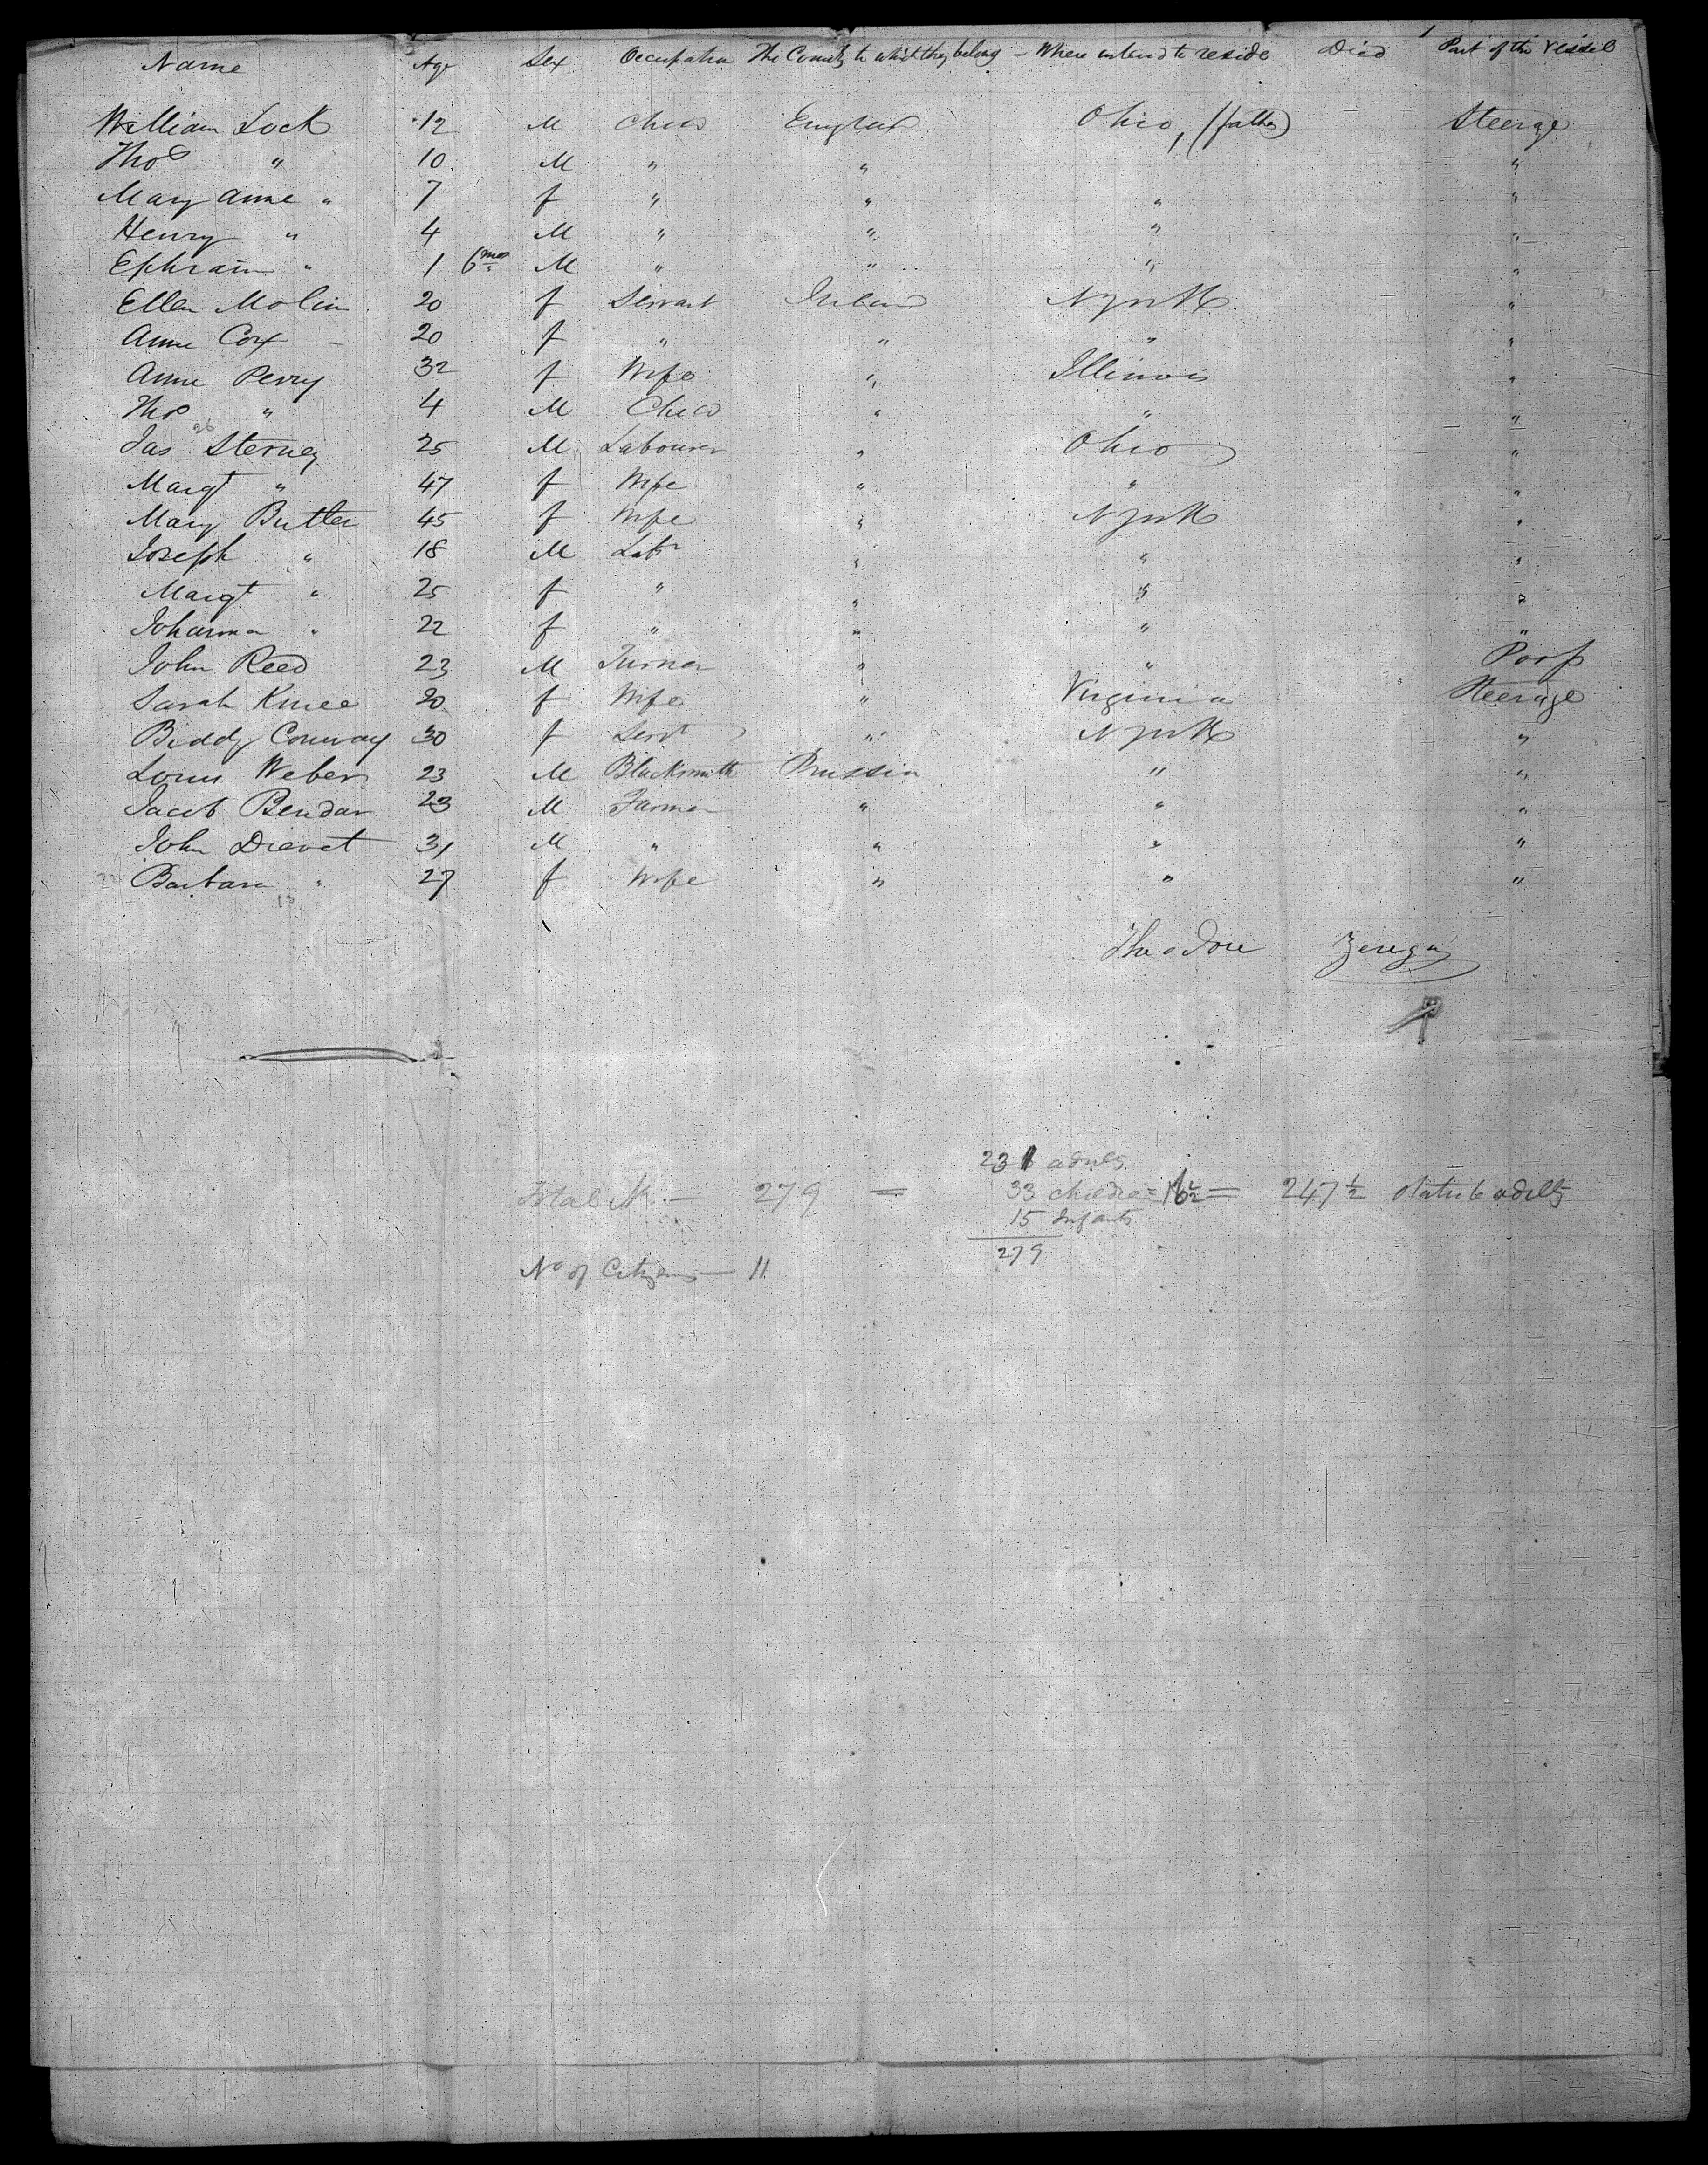 Name Age Sex Occupation The Country to which they belong - Where intend to reside Died Part of the Vessel
William Lock 12 M Child England Ohio, (father) Steerage
Thos " 10 M " " "
Mary Anne " 7 f " " " "
Henry " 4 M " " " "
Ephraim " 1 6 mos M " " " "
Ellen Molin 20 f Servant Ireland NYork "
Anne Cox - 20 f " " " "
Anne Perry 32 f Wife " Illinois "
Thos " 4 M Child " " "
26
Jas Sterney 25 M Labourer " Ohio "
Margt " 47 f Wife " " "
Mary Butler 45 f Wife " NYork "
Joseph " 18 M Labr " " "
Margt " 25 f " " " "
Johanna " 22 f " " " "
John Reed 23 M Turner " " Poop
Sarah Knee 20 f Wife " Virginia Steerage
Biddy Conway 30 f Servt " NYork "
Louis Weber 23 M Blacksmith Prussia " "
Jacob Bendar 23 M Farmer " " "
John Dievet 31 M " " " "
22 Barbara " 27 f Wife " " "
13
Theodore Zerega
231 adults
Total No. - 279 = 33 children = 16½ = 247½ Statute adults
15 Infants
279
No of Citizens - 11